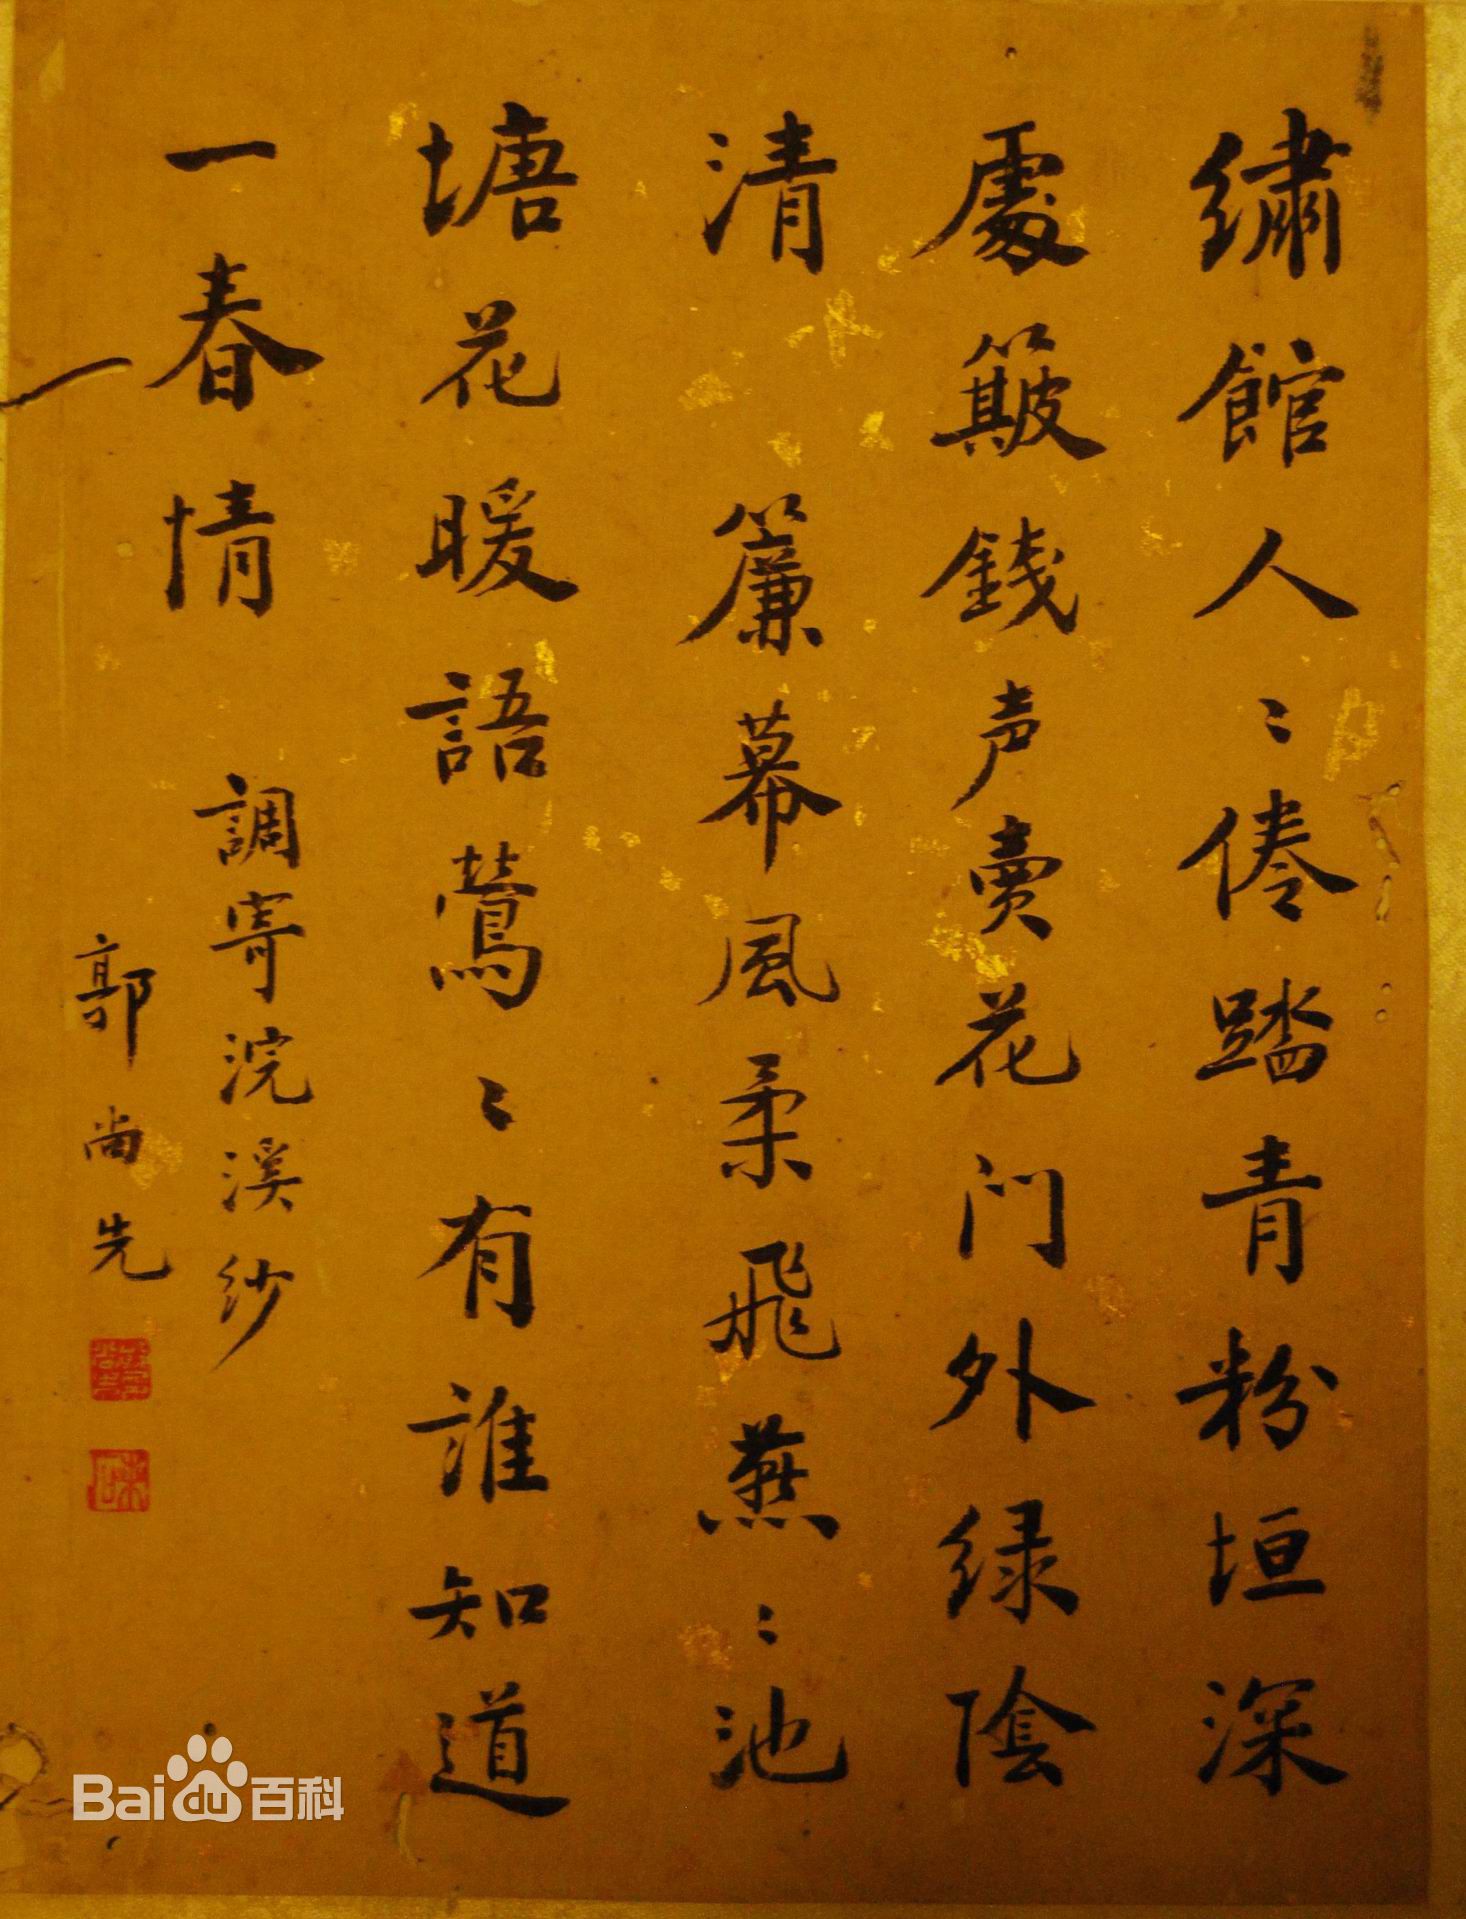 繡館人〻倦踏青粉垣深
處簸錢声賣花门外緑陰
清 簾幕風柔飛燕〻池
塘花暖語鶯〻有誰知道
一春情
調寄浣溪紗
郭尚先
Bai du 百科